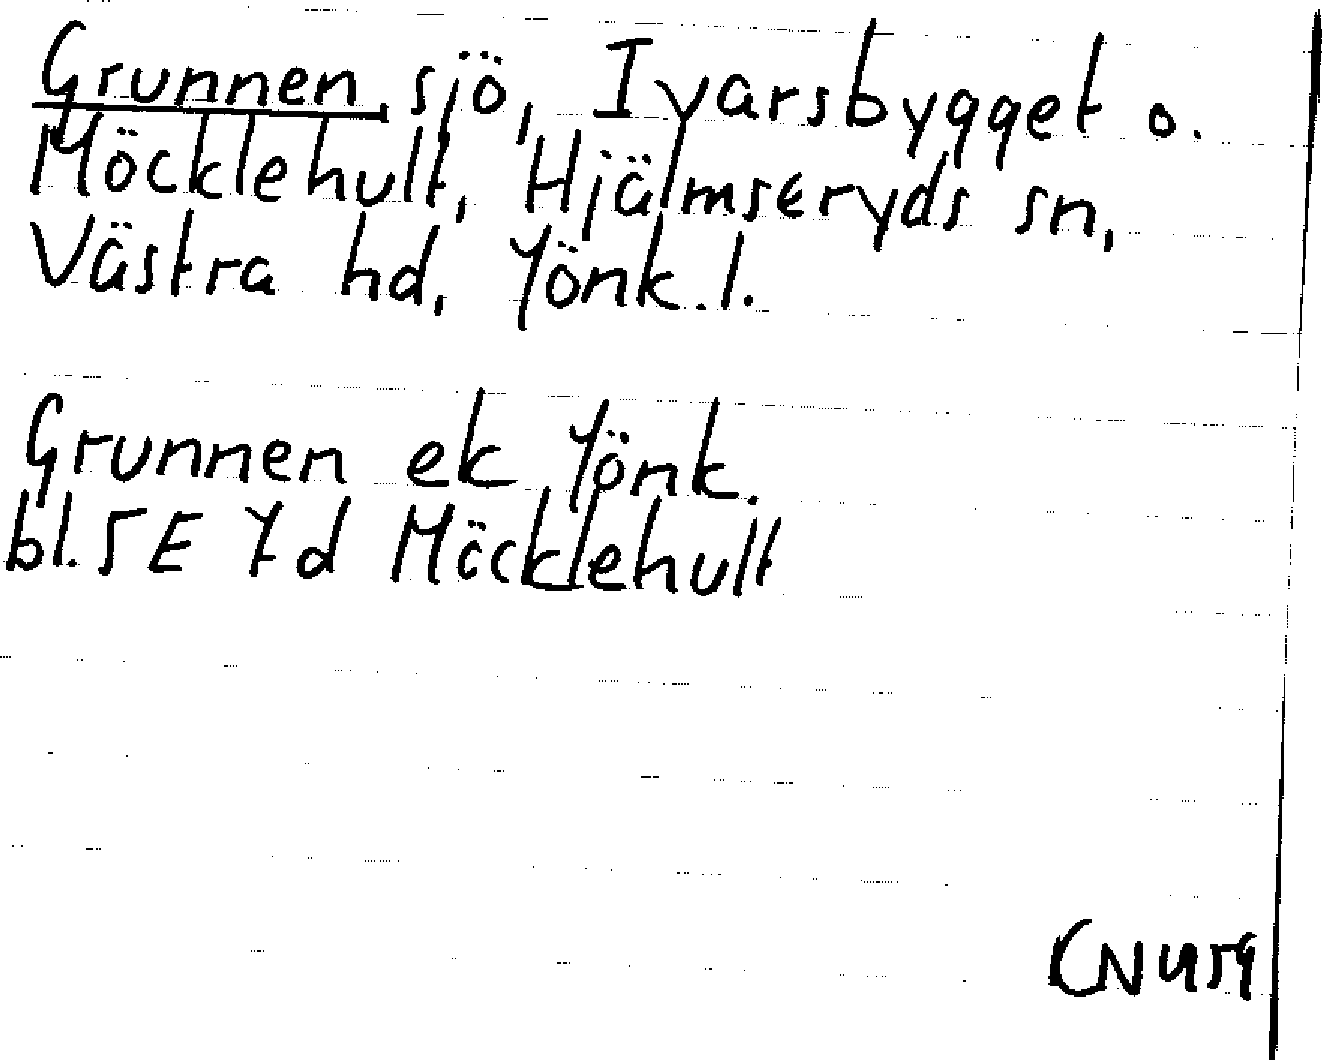 Grunnen, sjö, Ivarsbygget o.
Möcklehult, Hjälmseryds sn,
Västra hd, Jönk. l.
Grunnen ek Jönk.
bl. 5E 7d Möcklehult